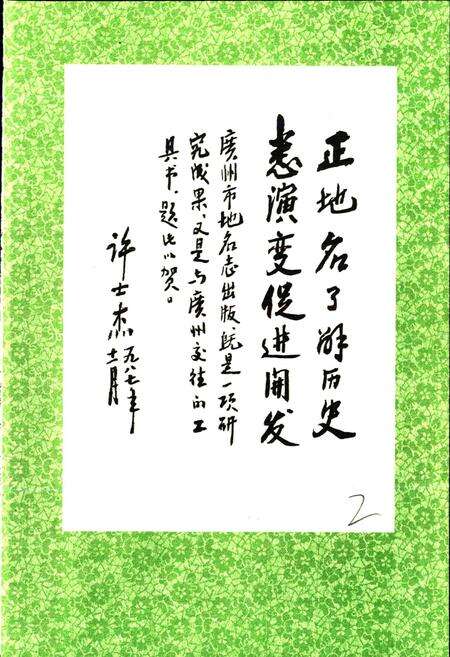 正地名了解历史
悉演变促进开发
廣州市地名志出版、既是一项研
究成果、又是与廣州交往的工
具书、题此以贺。
许士杰一九八七年
十二月
2